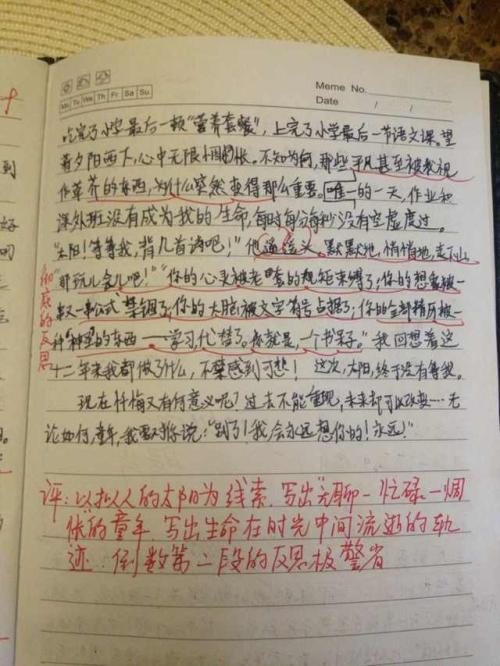 Meme No.
Mo Tu We Th Fr Sa Su
Date / /
吃完了小学最后一顿"营养套餐",上完了小学最后一节语文课。望
着夕阳西下,心中无限惆怅。不知为何,那些平凡甚至被我视
作草芥的东西,为什么突然变得那么重要。唯一的一天,作业和
课外班没有成为我的生命,每时每分每秒没有空虚度过。
"太阳!等等我,背几首诗吧!"他摇摇头。默默地,悄悄地,走下山
"那玩儿会儿吧!""你的心灵被老套的规矩束缚了;你的想象被一
条又一条公式禁锢了;你的大脑被文字符号占据了;你的全部精力被一
种"神圣"的东西——学习代替了。你就是,一个书呆子。"我回想着这
十二年来我都做了什么,不禁感到可悲!这次,太阳,终于没有等我。
现在忏悔又有何意义呢?过去不能重现,未来却可以改变…无
论如何,童年,我要对你说:"别了!我会永远想你的!永远!"
的反思
评:以拟人的太阳为线索,写出"无聊—忙碌—惆
怅"的童年,写出生命在时光中间流逝的轨
迹。倒数第二段的反思极警省